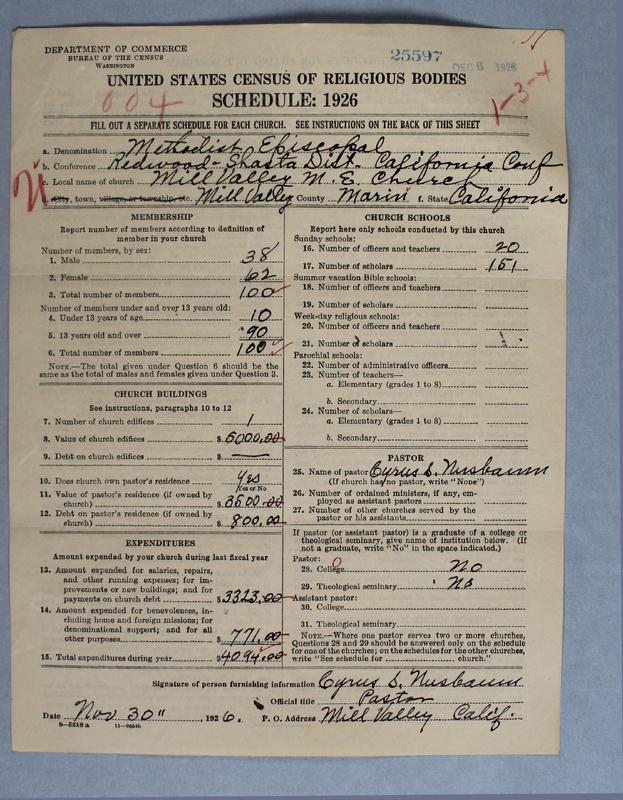 DEPARTMENT OF COMMERCE
BUREAU OF THE CENSUS
WASHINGTON
25597
DEC 6 1926
UNITED STATES CENSUS OF RELIGIOUS BODIES
004
SCHEDULE: 1926
1-3-4
FILL OUT A SEPARATE SCHEDULE FOR EACH CHURCH. SEE INSTRUCTIONS ON THE BACK OF THIS SHEET
a. Denomination Methodist Episcopal
b. Conference Redwood-Shasta Dist. California Conf
c. Local name of church Mill Valley M. E. Church
d. City, town, village, or township, etc. Mill Valley County Marin f. State California
MEMBERSHIP
Report number of members according to definition of
member in your church
Number of members, by sex:
1. Male 38
2. Female 62
3. Total number of members 100
Number of members under and over 13 years old:
4. Under 13 years of age 10
5. 13 years old and over 90
6. Total number of members 100
NOTE.—The total given under Question 6 should be the
same as the total of males and females given under Question 3.
CHURCH BUILDINGS
See instructions, paragraphs 10 to 12
7. Number of church edifices 1
8. Value of church edifices $5000.00
9. Debt on church edifices $ —
10. Does church own pastor's residence? Yes
Yes or No
11. Value of pastor's residence (if owned by
church) $3500.00
12. Debt on pastor's residence (if owned by
church) $800.00
EXPENDITURES
Amount expended by your church during last fiscal year
13. Amount expended for salaries, repairs,
and other running expenses; for im-
provements or new buildings; and for
payments on church debt $3323.00
14. Amount expended for benevolences, in-
cluding home and foreign missions; for
denominational support; and for all
other purposes $771.00
15. Total expenditures during year $4094.00
CHURCH SCHOOLS
Report here only schools conducted by this church
Sunday schools:
16. Number of officers and teachers 20
17. Number of scholars 151
Summer vacation Bible schools:
18. Number of officers and teachers
19. Number of scholars
Week-day religious schools:
20. Number of officers and teachers
21. Number of scholars
Parochial schools:
22. Number of administrative officers
23. Number of teachers—
a. Elementary (grades 1 to 8)
b. Secondary
24. Number of scholars—
a. Elementary (grades 1 to 8)
b. Secondary
PASTOR
25. Name of pastor Cyrus S. Nusbaum
(If church has no pastor, write "None")
26. Number of ordained ministers, if any, em-
ployed as assistant pastors
27. Number of other churches served by the
pastor or his assistants
If pastor (or assistant pastor) is a graduate of a college or
theological seminary, give name of institution below. (If
not a graduate, write "No" in the space indicated.)
Pastor: 0
28. College No
29. Theological seminary No
Assistant pastor:
30. College
31. Theological seminary
NOTE.—Where one pastor serves two or more churches,
Questions 28 and 29 should be answered only on the schedule
for one of the churches; on the schedules for the other churches,
write "See schedule for church."
Signature of person furnishing information Cyrus S. Nusbaum
Official title Pastor
Date Nov 30", 1926. P. O. Address Mill Valley Calif.
8—5518 a 11—9034b